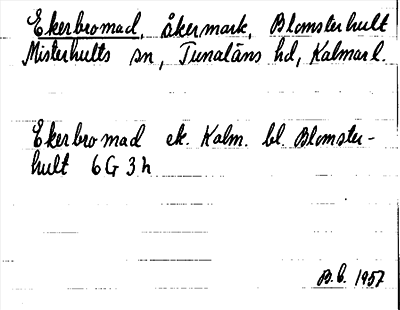 Ekerbromad, åkermark, Blomsterhult
Misterhults sn, Tunaläns hd, Kalmar l.
Ekerbromad ek. Kalm. bl. Blomster-
hult 6G3h
B.C. 1957